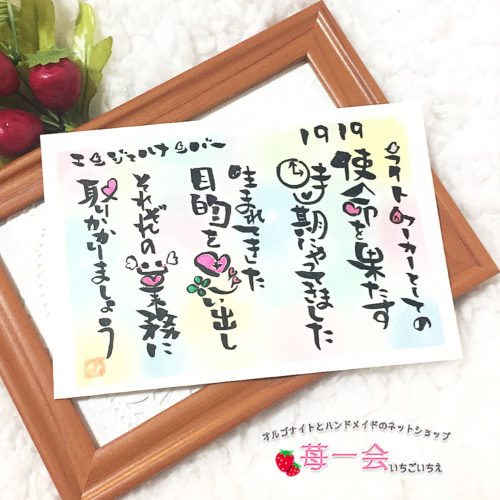 エンジェルナンバー
1919
ライトワーカーとしての
使命を果たす
時期にやってきました
生まれてきた
目的を思い出し
それぞれの業務に
取りかかりましょう
オルゴナイトとハンドメイドのネットショップ
苺一会 いちごいちえ